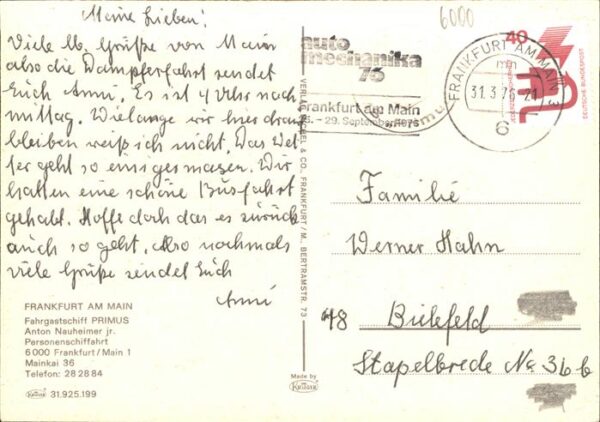 Meine Lieben!
Viele lb. Grüße von Main
also die Dampferfahrt sendet
Euch Anni. Es ist 4 Uhr nach
mittag. Wielange wir hier
bleiben weiß ich nicht. Das Wet
ter geht so einigermasen. Wir
hatten eine schöne Busfahrt
gehabt. Hoffe doch das es zurück
auch so geht. Also nochmals
viele Grüße sendet Euch
Anni
FRANKFURT AM MAIN
Fahrgastschiff PRIMUS
Anton Nauheimer jr.
Personenschiffahrt
6000 Frankfurt/Main 1
Mainkai 36
Telefon: 28 28 84
KRÜGER 31.925.199
VERLAG & CO., FRANKFURT/M., BERTRAMSTR. 73
Made by
KRÜGER
6000
auto
mechanika
76
Frankfurt am Main
- 29. September 1976
FRANKFURT AM MAIN 3
mn
31.3.76-21
6
40
DEUTSCHE BUNDESPOST
Familie
Werner Hahn
48 Bielefeld
Stapelbrede No 36 b